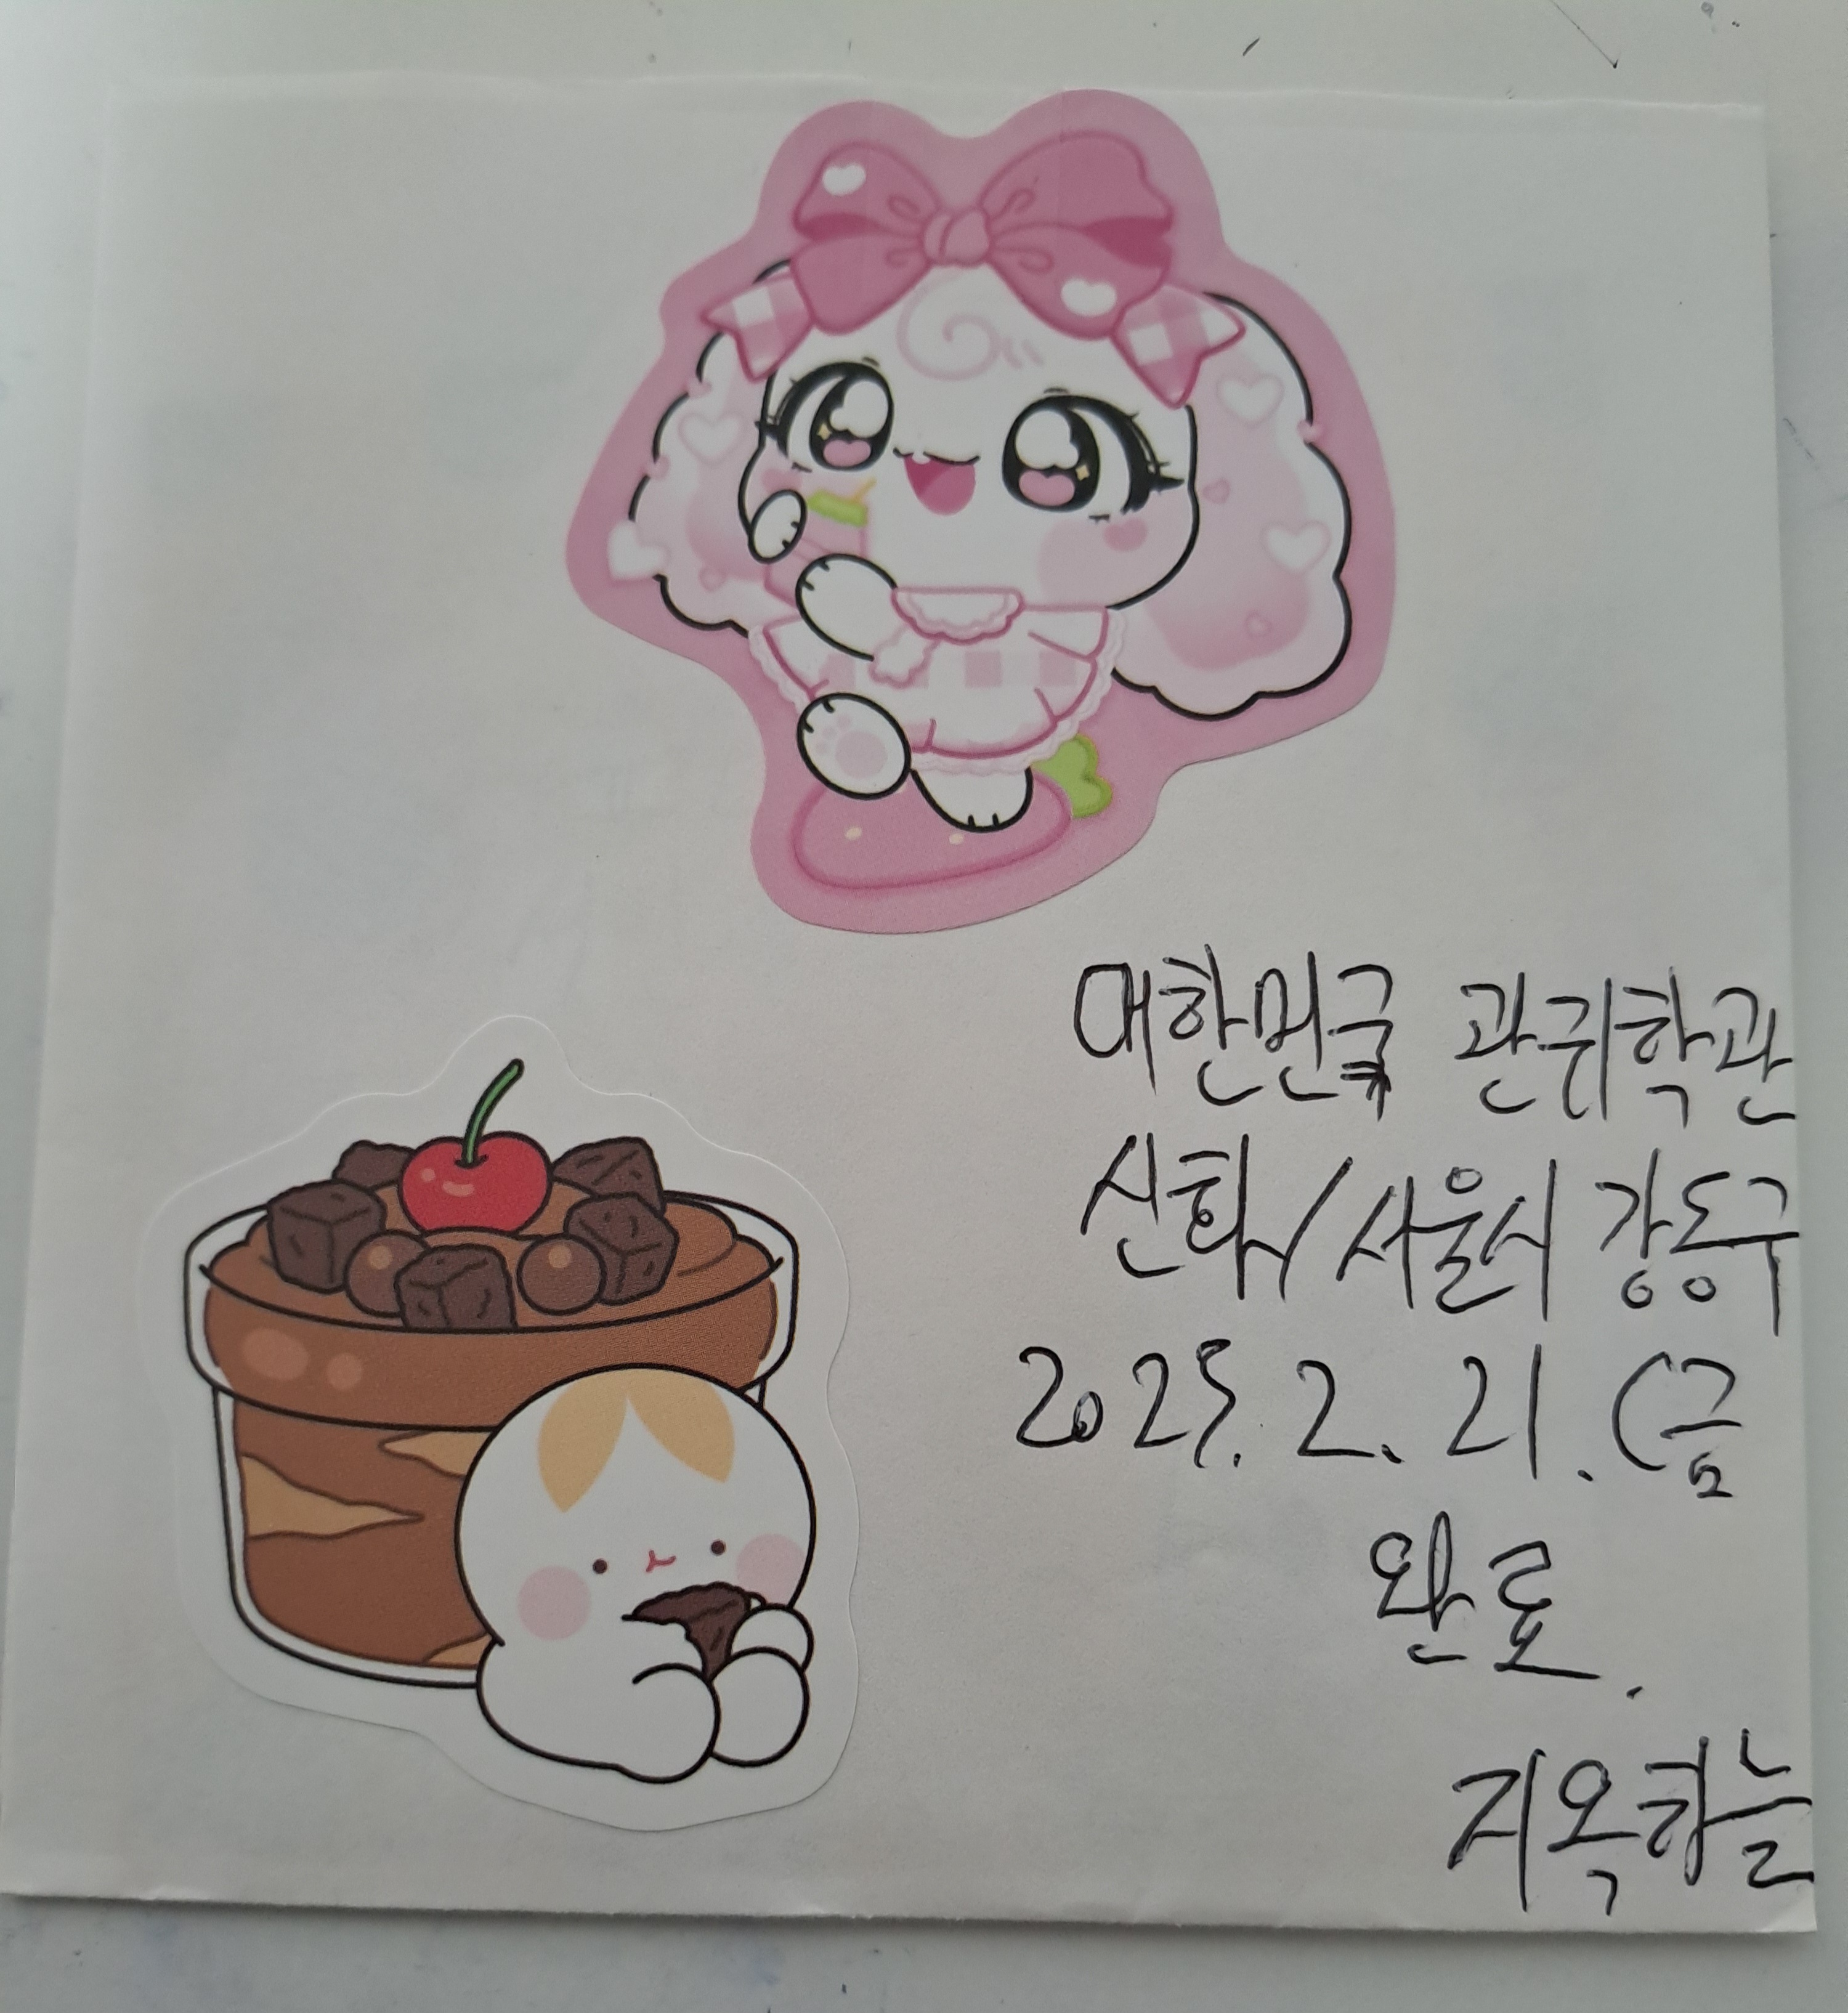 대한민국 관귀학관
신화/서울시 강동구
2025. 2. 21. (금
완료.
지옥하늘